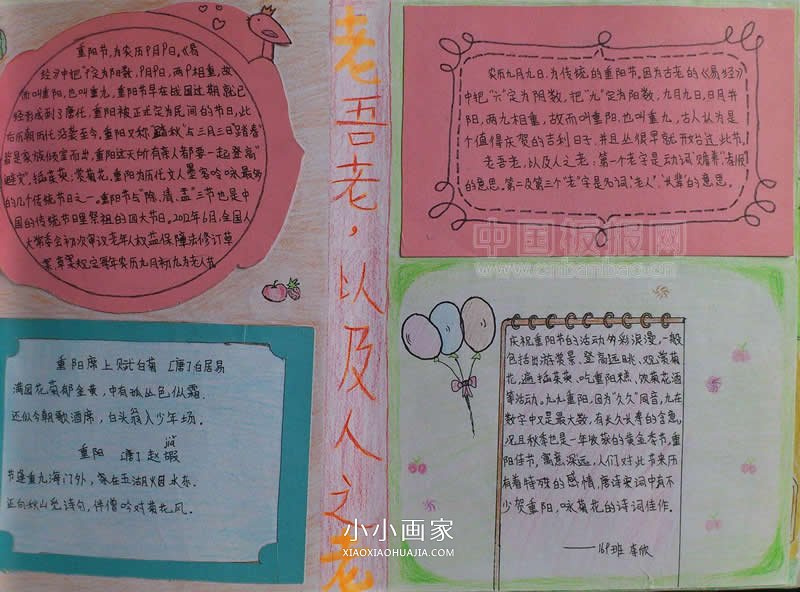 重阳节,为农历9月9日,《易
经》中把"9"定为阳数,9月9日,两9相重,故
而叫重阳,也叫重九,重阳节早在战国时期就已
经形成到了唐代,重阳被正式定为民间的节日,此
后历朝历代沿袭至今,重阳又称"踏秋"与三月三日"踏春"
皆是家族倾室而出,重阳这天所有亲人都要一起登高"
避灾",插茱萸,赏菊花,重阳为历代文人墨客吟咏最多
的几个传统节日之一。重阳节与"除、清、盂"三节也是中
国的传统节日里祭祖的四大节日。2012年6月,全国人
大常委会初次审议老年人权益保障法修订草
案,草案规定每年农历九月初九为老人节
重阳席上赋白菊 [唐]白居易
满园花菊郁金黄,中有孤丛色似霜.
还似今朝歌酒席,白头翁入少年场.
重阳 [唐]赵嘏
节逢重九海门外,家在五湖烟水东.
还向秋山觅诗句,伴僧吟对菊花风.
老吾老,以及人之老
农历九月九日,为传统的重阳节。因为古老的《易经》
中把"六"定为阴数,把"九"定为阳数,九月九日,日月并
阳,两九相重,故而叫重阳,也叫重九,古人认为是
个值得庆贺的吉利日子,并且从很早就开始过此节。
老吾老,以及人之老,第一个老字是动词"赡养""孝顺"
的意思。第二及第三个"老"字是名词"老人","长辈"的意思。
中国板报网
www.cnbanbao.cn
庆祝重阳节的活动多彩浪漫,一般
包括出游赏景、登高远眺、观赏菊
花、遍插茱萸、吃重阳糕、饮菊花酒
等活动。九九重阳,因为"久久"同音,九在
数字中又是最大数,有长久长寿的含意,
况且秋季也是一年收获的黄金季节,重
阳佳节,寓意深远,人们对此节来历
有着特殊的感情,唐诗宋词中有不
少贺重阳,咏菊花的诗词佳作.
——169班 李欣
小小画家
XIAOXIAOHUAJIA.COM